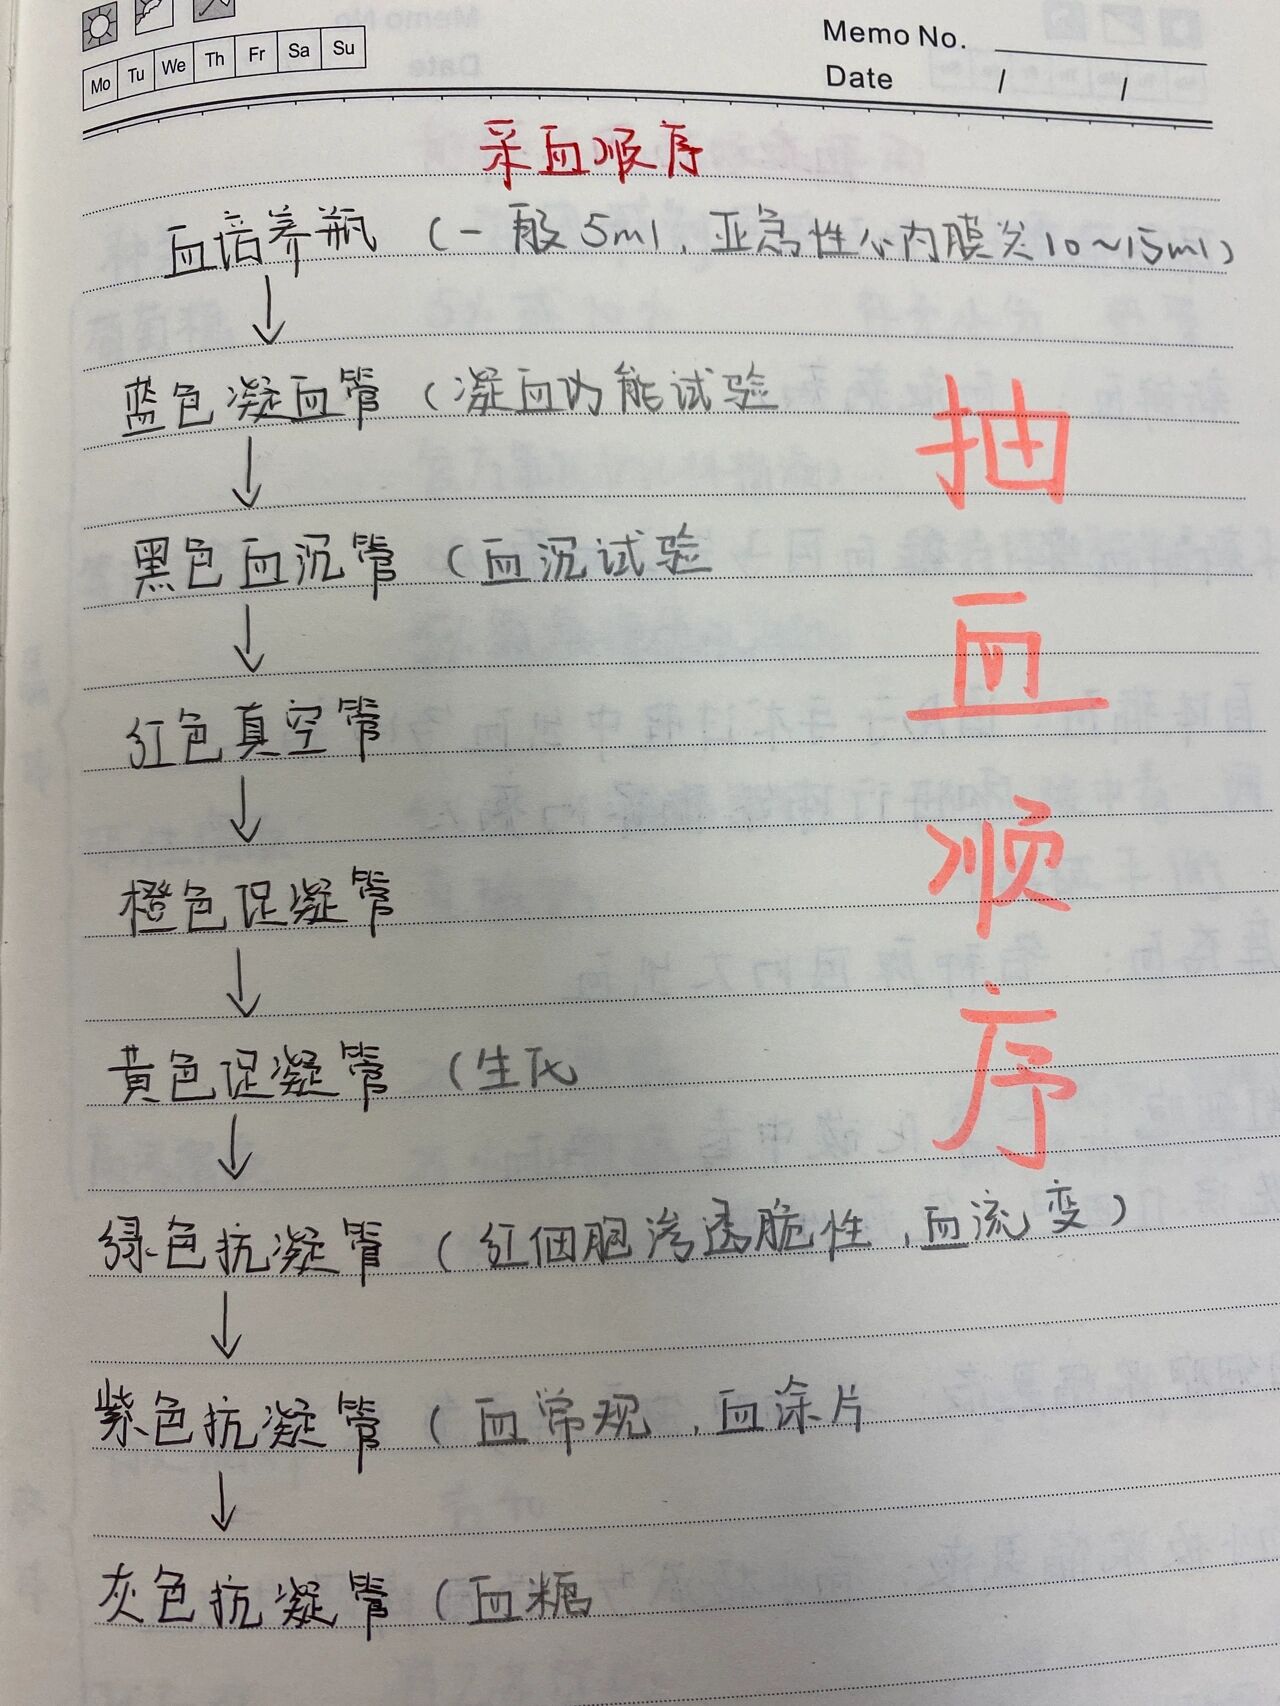 Mo Tu We Th Fr Sa Su
Memo No.
Date / /
采血顺序
血培养瓶 (一般5ml,亚急性心内膜炎10~15ml)
↓
蓝色凝血管 (凝血功能试验
↓
黑色血沉管 (血沉试验
↓
红色真空管
↓
橙色促凝管
↓
黄色促凝管 (生化
↓
绿色抗凝管 (红细胞渗透脆性,血流变)
↓
紫色抗凝管 (血常规,血涂片
↓
灰色抗凝管 (血糖
抽
血
顺
序